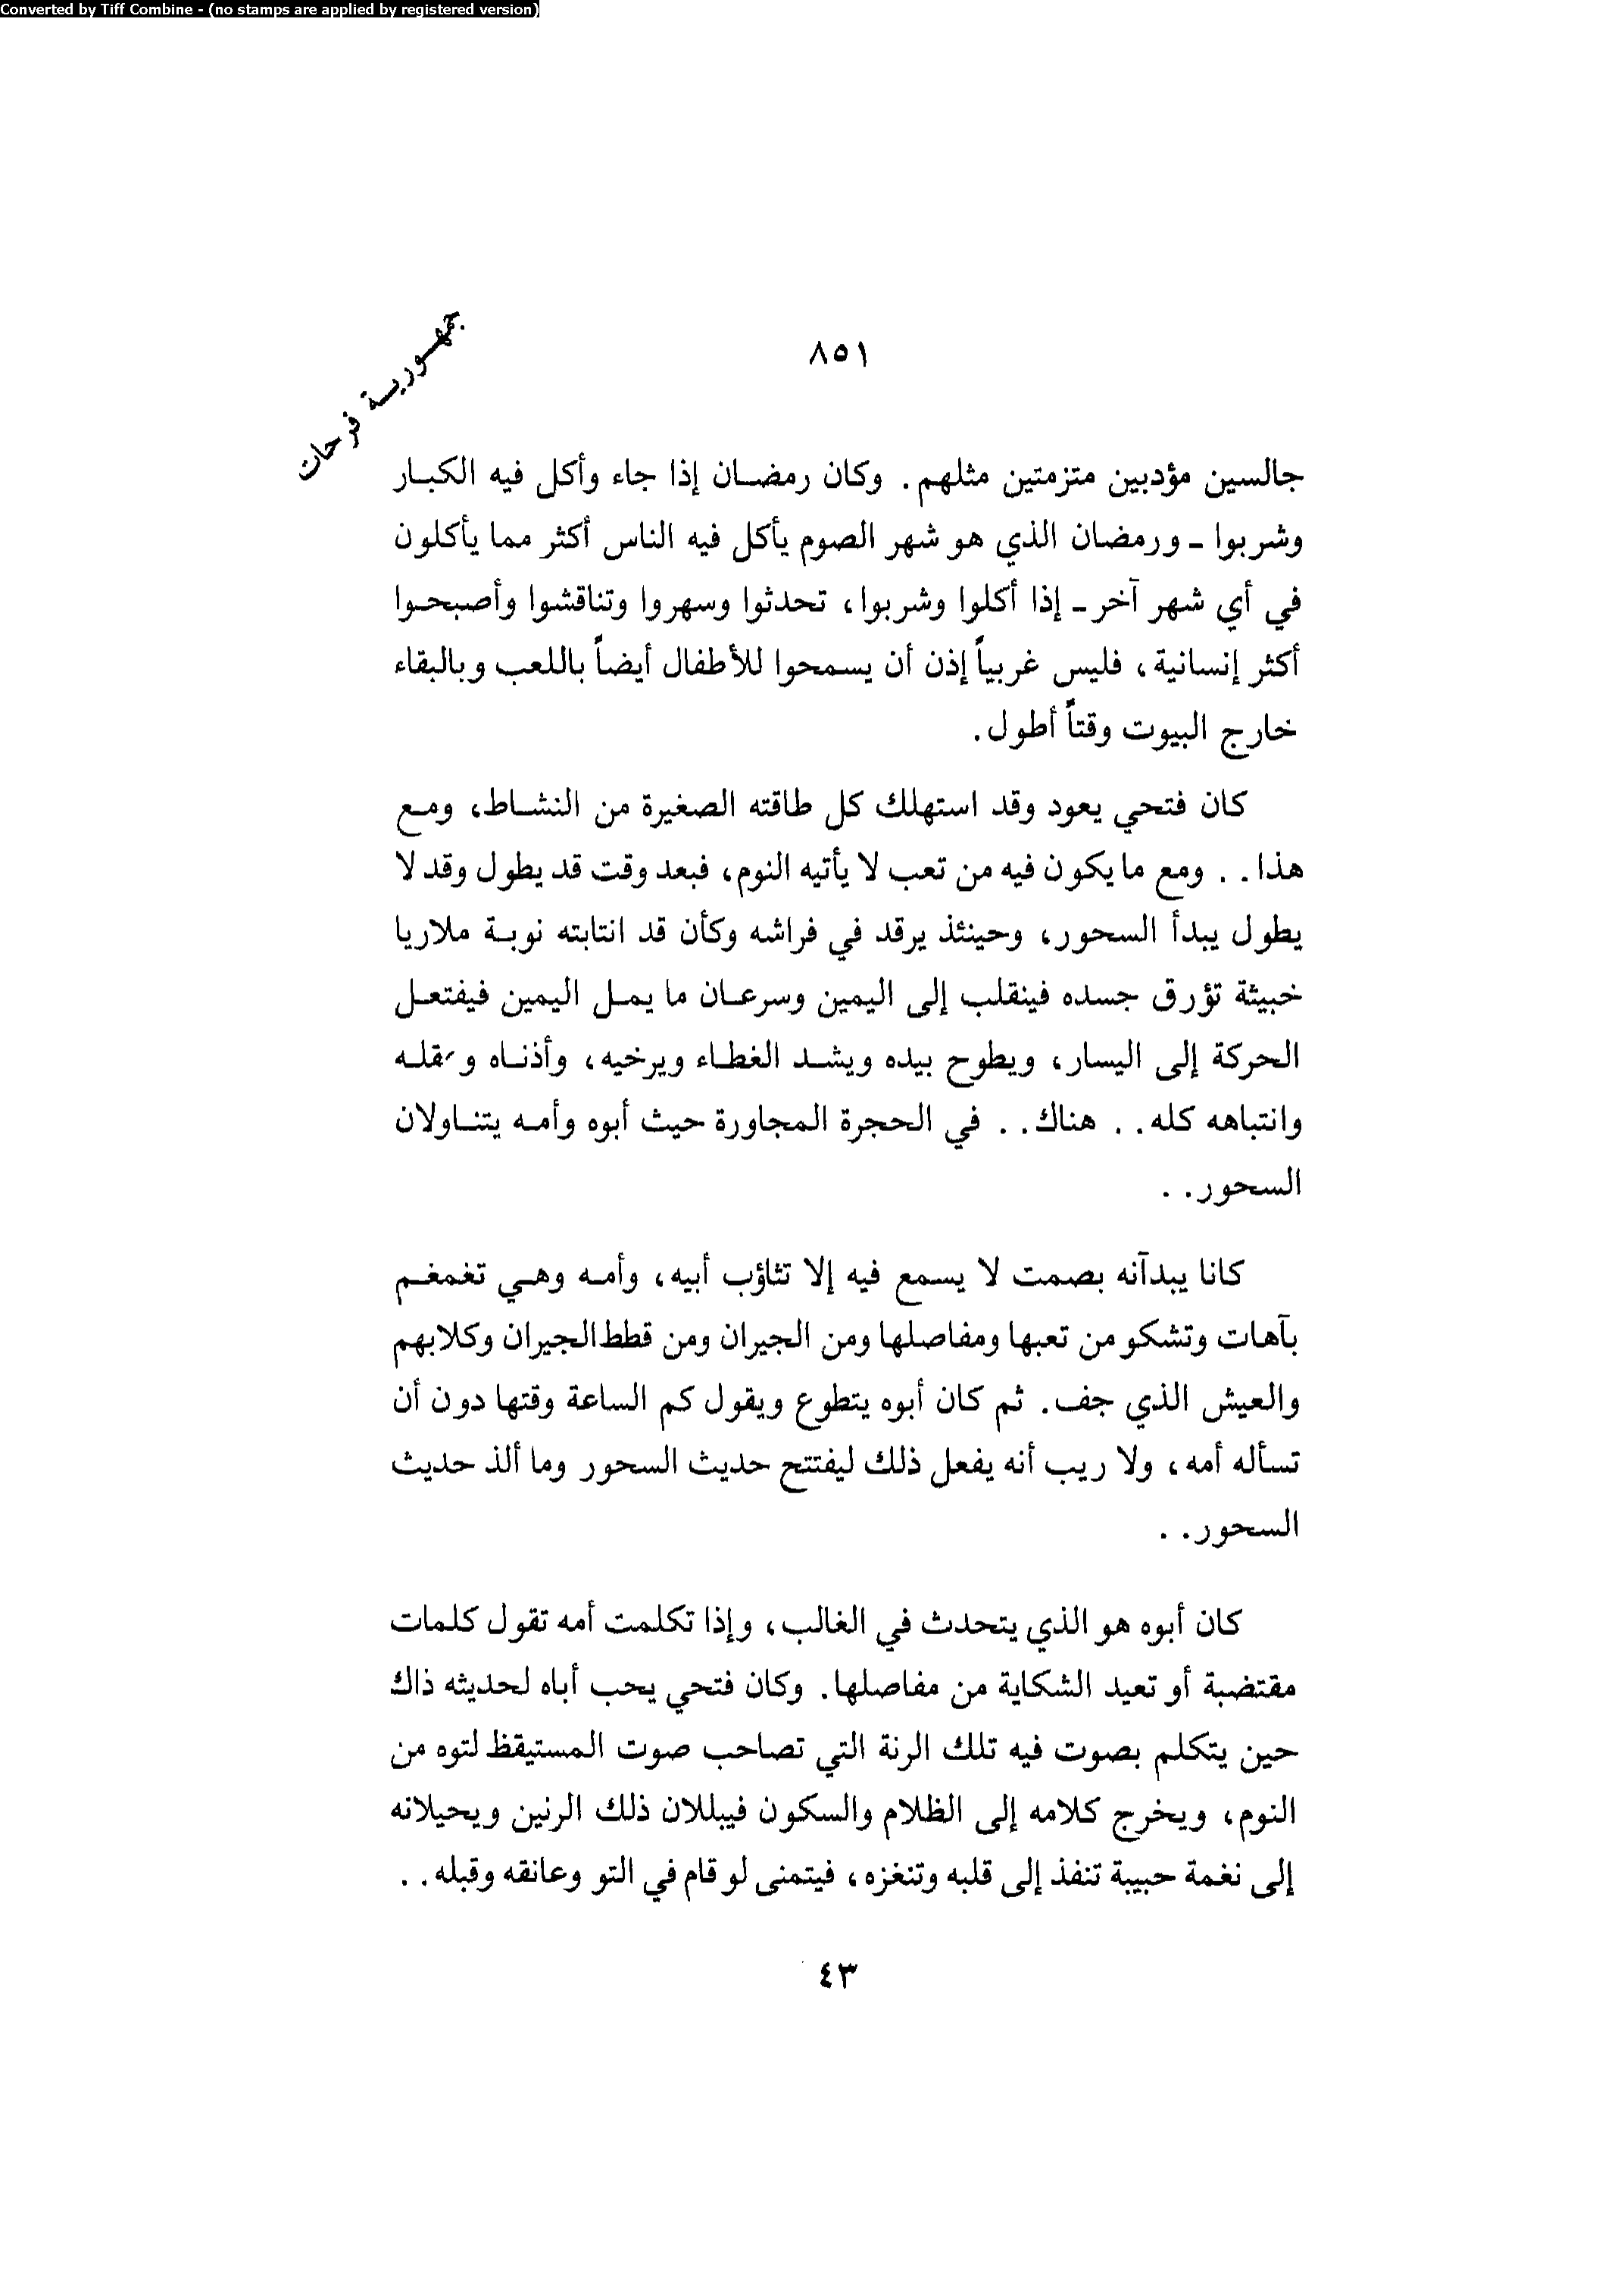 Converted by Tiff Combine - (no stamps are applied by registered version)
جمهورية فرحات
٨٥١
جالسين مؤدبين متزمتين مثلهم. وكان رمضان إذا جاء وأكل فيه الكبار
وشربوا - ورمضان الذي هو شهر الصوم يأكل فيه الناس أكثر مما يأكلون
في أي شهر آخر - إذا أكلوا وشربوا، تحدثوا وسهروا وتناقشوا وأصبحوا
أكثر إنسانية، فليس غربياً إذن أن يسمحوا للأطفال أيضاً باللعب وبالبقاء
خارج البيوت وقتاً أطول.
كان فتحي يعود وقد استهلك كل طاقته الصغيرة من النشاط، ومع
هذا.. ومع ما يكون فيه من تعب لا يأتيه النوم، فبعد وقت قد يطول وقد لا
يطول يبدأ السحور، وحينئذ يرقد في فراشه وكأن قد انتابته نوبة ملاريا
خبيثة تؤرق جسده فينقلب إلى اليمين وسرعان ما يمل اليمين فيفتعل
الحركة إلى اليسار، ويطوح بيده ويشد الغطاء ويرخيه، وأذناه وعقله
وانتباهه كله.. هناك.. في الحجرة المجاورة حيث أبوه وأمه يتناولان
السحور..
كانا يبدآنه بصمت لا يسمع فيه إلا تثاؤب أبيه، وأمه وهي تغمغم
بآهات وتشكو من تعبها ومفاصلها ومن الجيران ومن قطط الجيران وكلابهم
والعيش الذي جف. ثم كان أبوه يتطوع ويقول كم الساعة وقتها دون أن
تسأله أمه، ولا ريب أنه يفعل ذلك ليفتتح حديث السحور وما ألذ حديث
السحور..
كان أبوه هو الذي يتحدث في الغالب، وإذا تكلمت أمه تقول كلمات
مقتضبة أو تعيد الشكاية من مفاصلها. وكان فتحي يحب أباه لحديثه ذاك
حين يتكلم بصوت فيه تلك الرنة التي تصاحب صوت المستيقظ لتوه من
النوم، ويخرج كلامه إلى الظلام والسكون فيبللان ذلك الرنين ويحيلانه
إلى نغمة حبيبة تنفذ إلى قلبه وتنغزه، فيتمنى لو قام في التو وعانقه وقبله..
٤٣